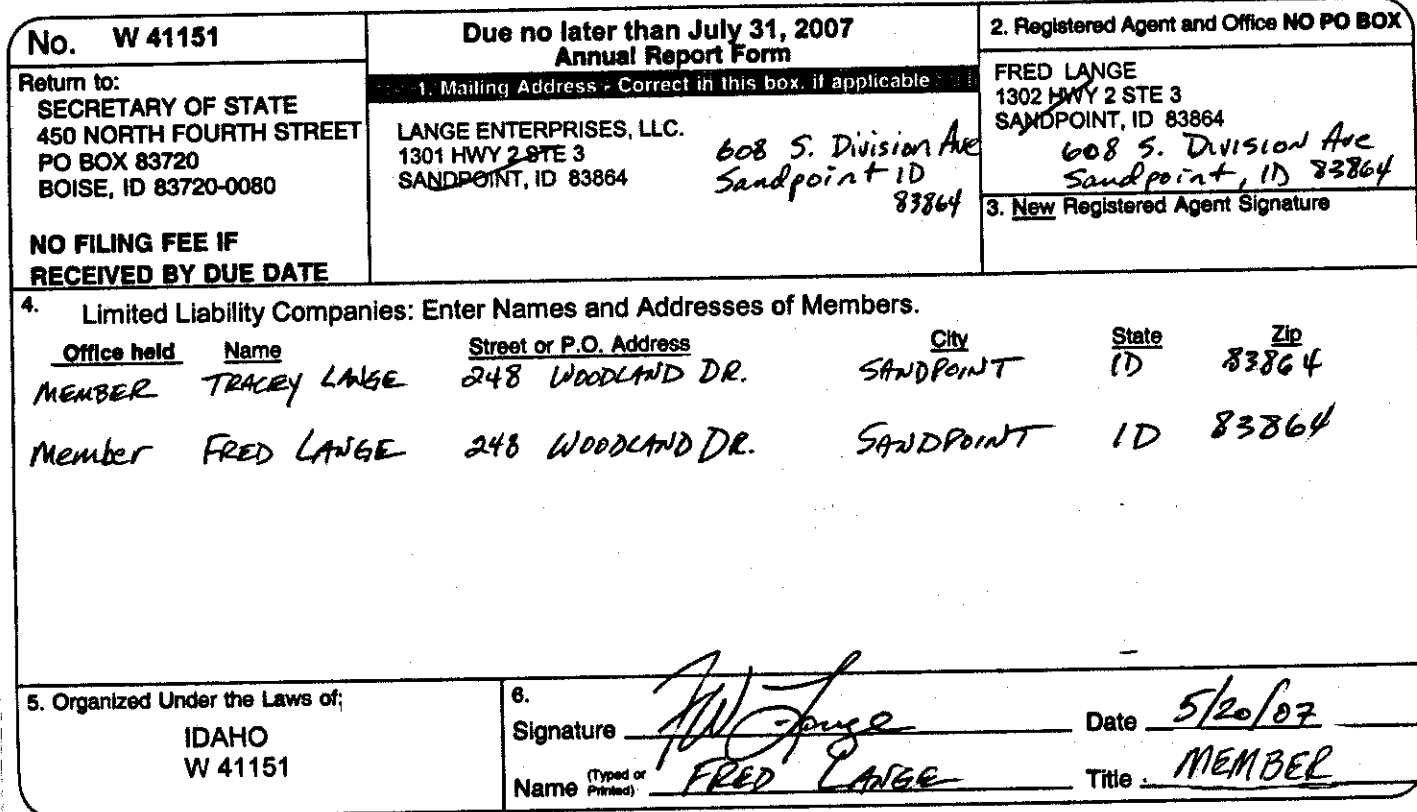 No. W 41151
Return to:
SECRETARY OF STATE
450 NORTH FOURTH STREET
PO BOX 83720
BOISE, ID 83720-0080
NO FILING FEE IF
RECEIVED BY DUE DATE
Due no later than July 31, 2007
Annual Report Form
1. Mailing Address - Correct in this box, if applicable
LANGE ENTERPRISES, LLC.
1301 HWY 2 STE 3
SANDPOINT, ID 83864
608 S. Division Ave
Sandpoint ID
83864
2. Registered Agent and Office NO PO BOX
FRED LANGE
1302 HWY 2 STE 3
SANDPOINT, ID 83864
608 S. Division Ave
Sandpoint, ID 83864
3. New Registered Agent Signature
4. Limited Liability Companies: Enter Names and Addresses of Members.
Office held Name Street or P.O. Address City State Zip
MEMBER TRACEY LANGE 248 WOODLAND DR. SANDPOINT ID 83864
Member FRED LANGE 248 WOODLAND DR. SANDPOINT ID 83864
5. Organized Under the Laws of:
IDAHO
W 41151
6.
Signature FW Lange Date 5/20/07
Name (Typed or Printed) FRED LANGE Title MEMBER